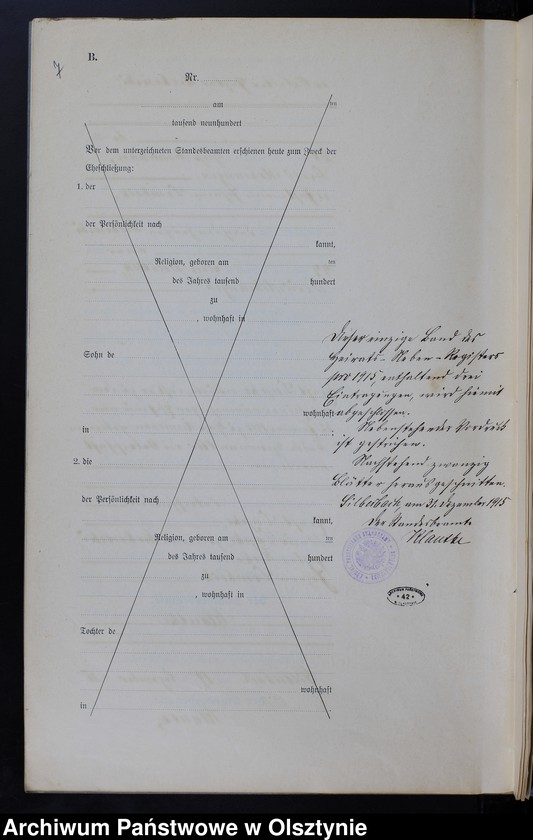 7
B.
Nr.
am ten
tausend neunhundert
Vor dem unterzeichneten Standesbeamten erschienen heute zum Zweck der
Eheschließung:
1. der
der Persönlichkeit nach
kannt,
Religion, geboren am ten
des Jahres tausend hundert
zu
, wohnhaft in
Sohn de
wohnhaft
in
2. die
der Persönlichkeit nach
kannt,
Religion, geboren am ten
des Jahres tausend hundert
zu
, wohnhaft in
Tochter de
wohnhaft
in
Dieser einzige Band des
Heirats-Neben-Registers
pro 1915, enthaltend drei
Eintragungen, wird hiermit
abgeschlossen.
Nebenstehender Vordruck
ist gestrichen.
Nachstehend zwanzig
Blätter herausgeschnitten.
Silberbach, am 31. Dezember 1915
Der Standesbeamte
42
Archiwum Państwowe w Olsztynie